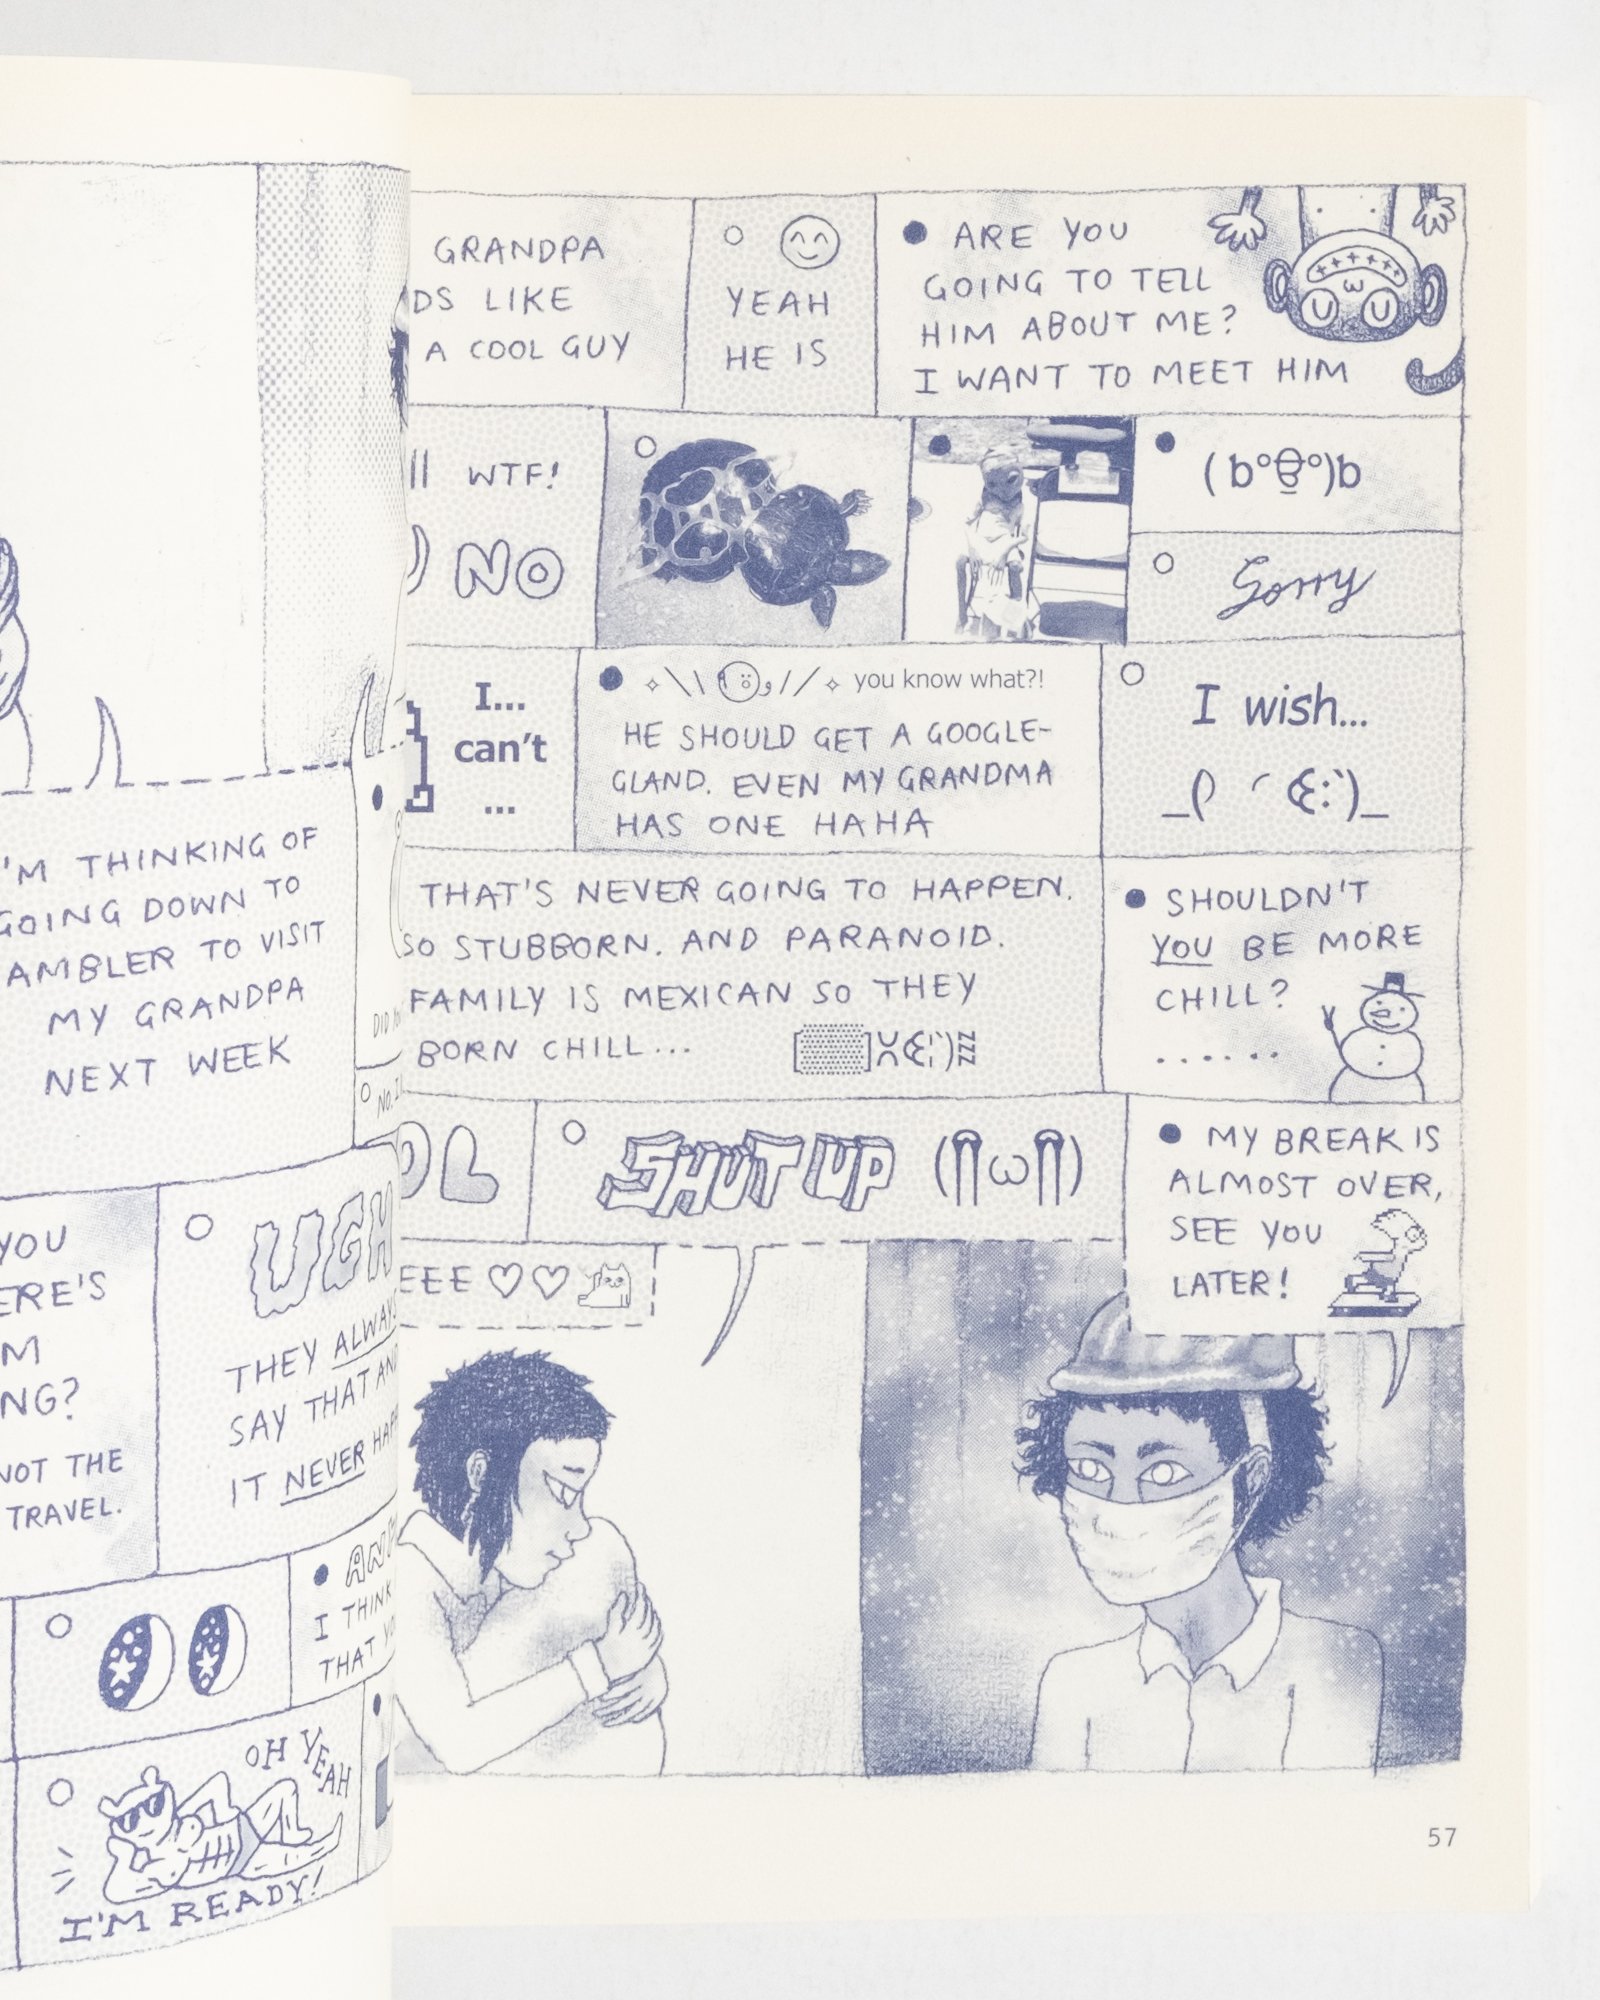 'M THINKING OF
GOING DOWN TO
AMBLER TO VISIT
MY GRANDPA
NEXT WEEK
YOU
ERE'S
M
NG?
NOT THE
TRAVEL.
UGH
THEY ALWAYS
SAY THAT AND
IT NEVER HAPP
I THINK
THAT YO
OH YEAH
I'M READY!
DID YO
NO, I
GRANDPA
DS LIKE
A COOL GUY
YEAH
HE IS
ARE YOU
GOING TO TELL
HIM ABOUT ME?
I WANT TO MEET HIM
WTF!
NO
(b°Ꙫ°)b
Sorry
I...
can't
...
you know what?!
HE SHOULD GET A GOOGLE-
GLAND. EVEN MY GRANDMA
HAS ONE HAHA
I wish...
THAT'S NEVER GOING TO HAPPEN.
SO STUBBORN. AND PARANOID.
FAMILY IS MEXICAN SO THEY
BORN CHILL...
zzz
SHOULDN'T
YOU BE MORE
CHILL?
......
OL
SHUT UP
MY BREAK IS
ALMOST OVER,
SEE YOU
LATER!
EEE ♡♡
57